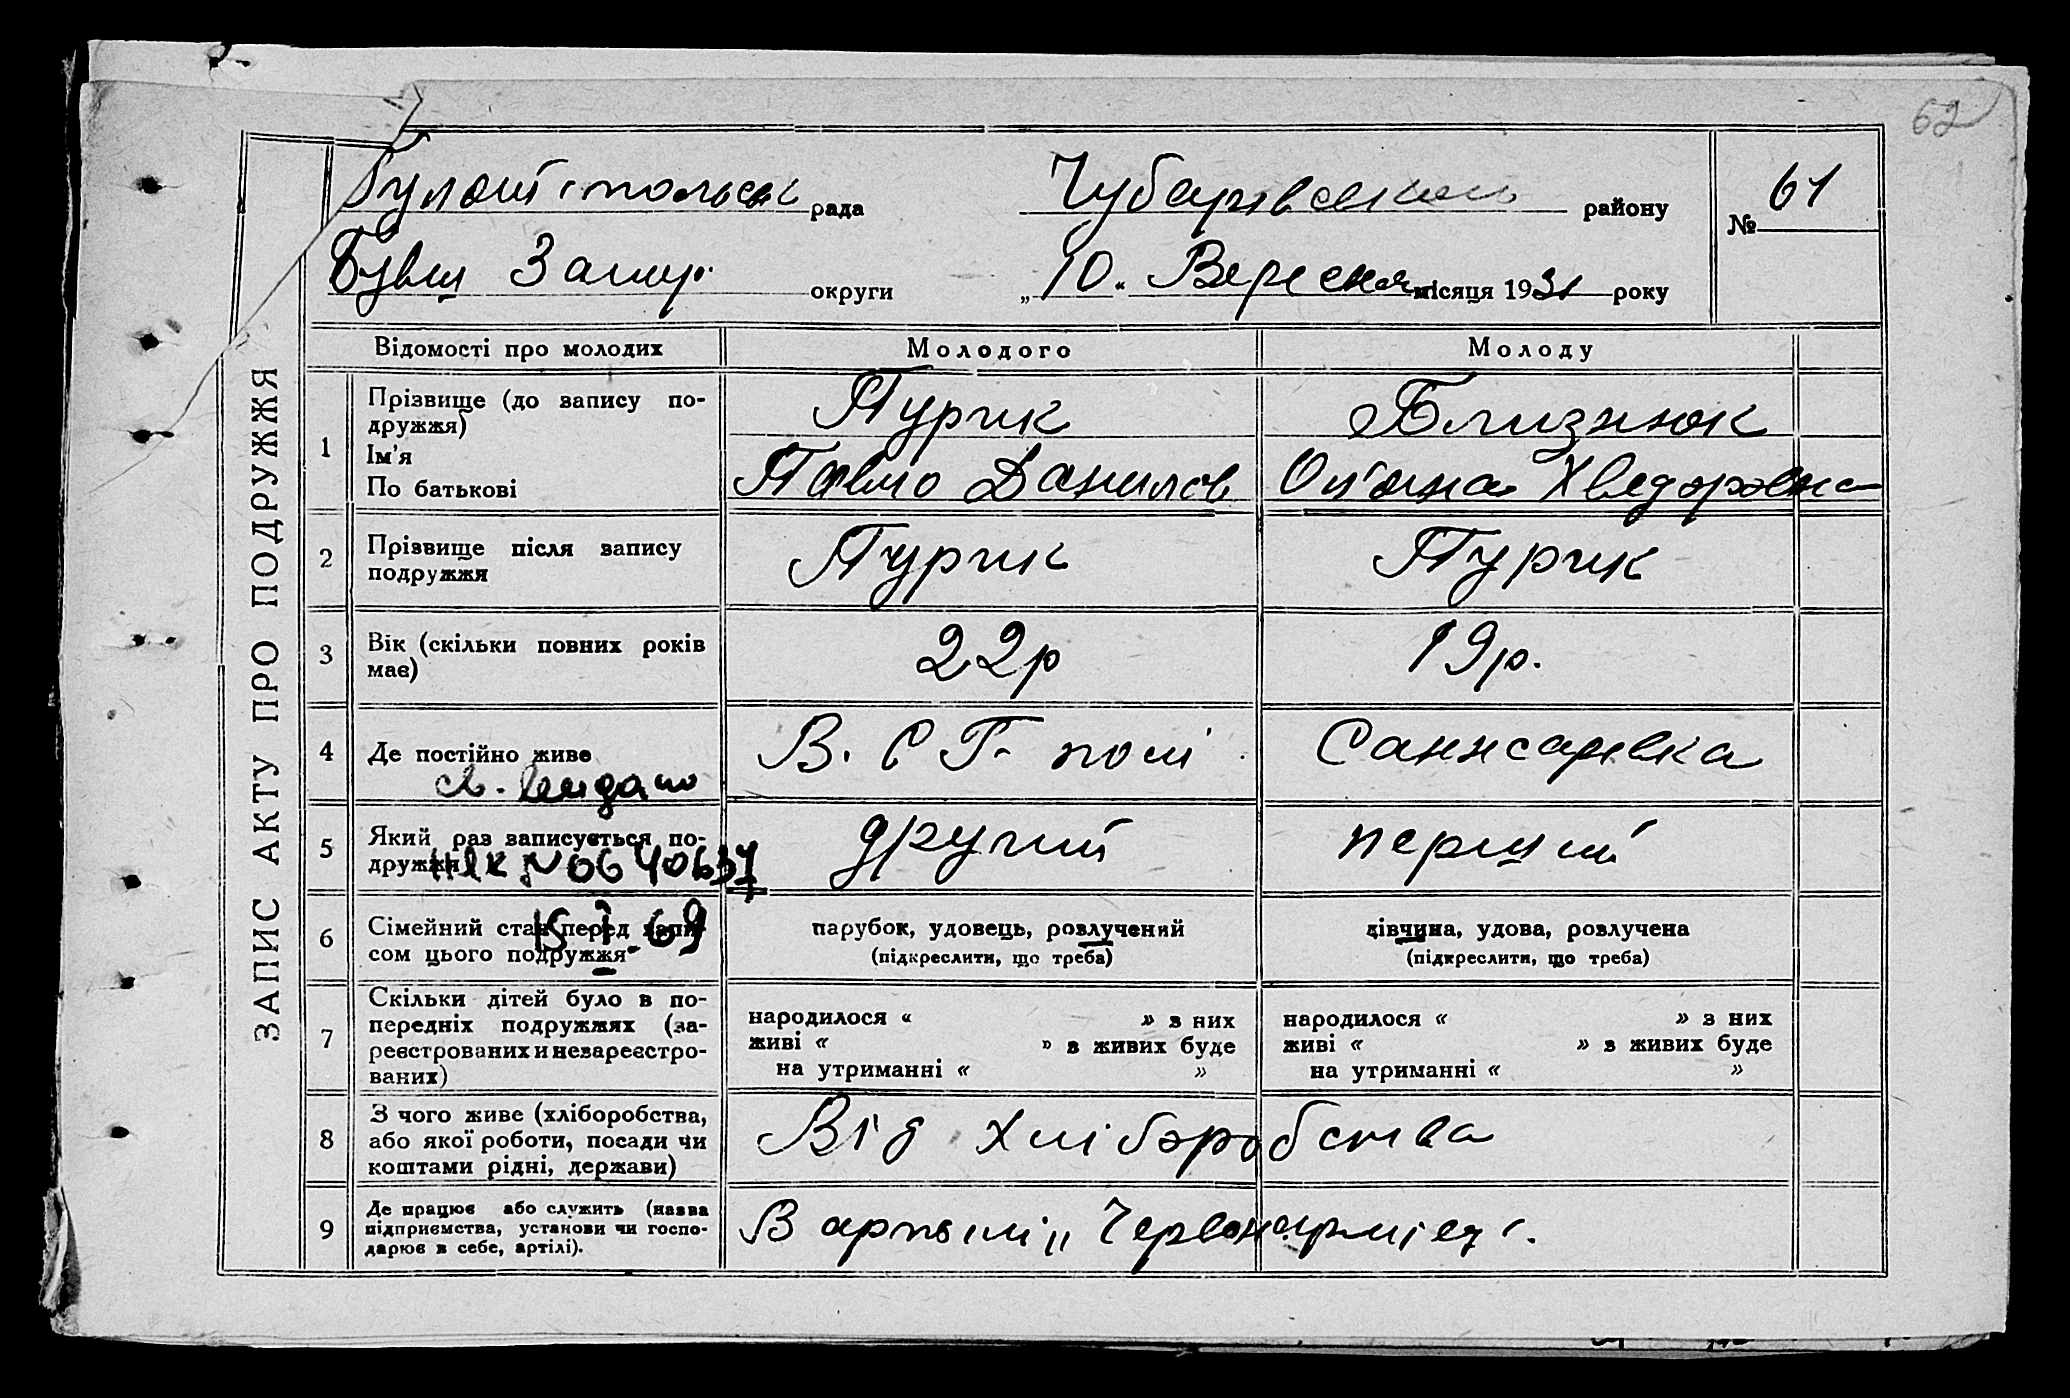 62
Гуляйпольськ рада Чубарівського району № 61
Бувш Запор. округи „10“ Вересня місяця 1931 року
ЗАПИС АКТУ ПРО ПОДРУЖЖЯ
Відомості про молодих Молодого Молоду
1 Прізвище (до запису по-
дружжя) Пурик Близнюк
Ім'я
По батькові Павло Данилов Хведоровна
2 Прізвище після запису
подружжя Пурик Пурик
3 Вік (скільки повних років
має) 22р 19р.
4 Де постійно живе В. С Г. полі Саннсарівка
св. видано
5 Який раз записується по-
дружжя другий перший
№ 0640637
6 Сімейний стан перед запи-
сом цього подружжя парубок, удовець, розлучений дівчина, удова, розлучена
(підкреслити, що треба) (підкреслити, що треба)
15-I-69
7 Скільки дітей було в по-
передніх подружжях (за-
реєстрованих и незареєстро-
ваних)
народилося “ ” з них
живі “ ” з живих буде
на утриманні “ ”
народилося “ ” з них
живі “ ” з живих буде
на утриманні “ ”
8 З чого живе (хліборобства,
або якої роботи, посади чи
коштами рідні, держави) Від хліборобства
9 Де працює або служить (назва
підприємства, установи чи госпо-
дарює в себе, артілі). В артілі „Червоноармієць.